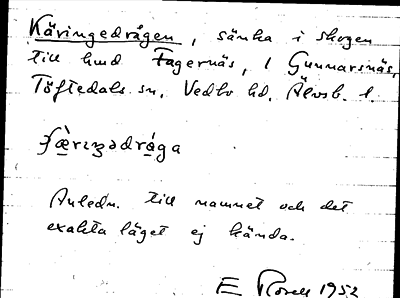 Käringedrågen, sänka i skogen
till hmd Fagernäs, 1 Gunnarsnäs,
Töftedals sn, Vedbo hd, Älvsb. l.
ʃæ̀rɩŋədrå̱ga
Anledn. till namnet och det
exakta läget ej kända.
E Rosell 1952